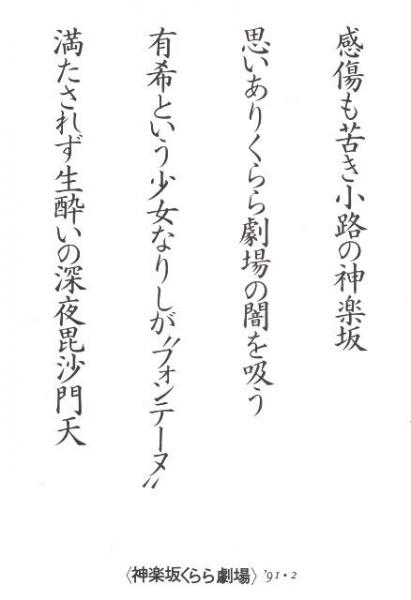 感傷も苦き小路の神楽坂
思いありくらら劇場の闇を吸う
有希という少女なりしが〝フォンテーヌ〟
満たされず生酔いの深夜毘沙門天
〈神楽坂くらら劇場〉'91・2